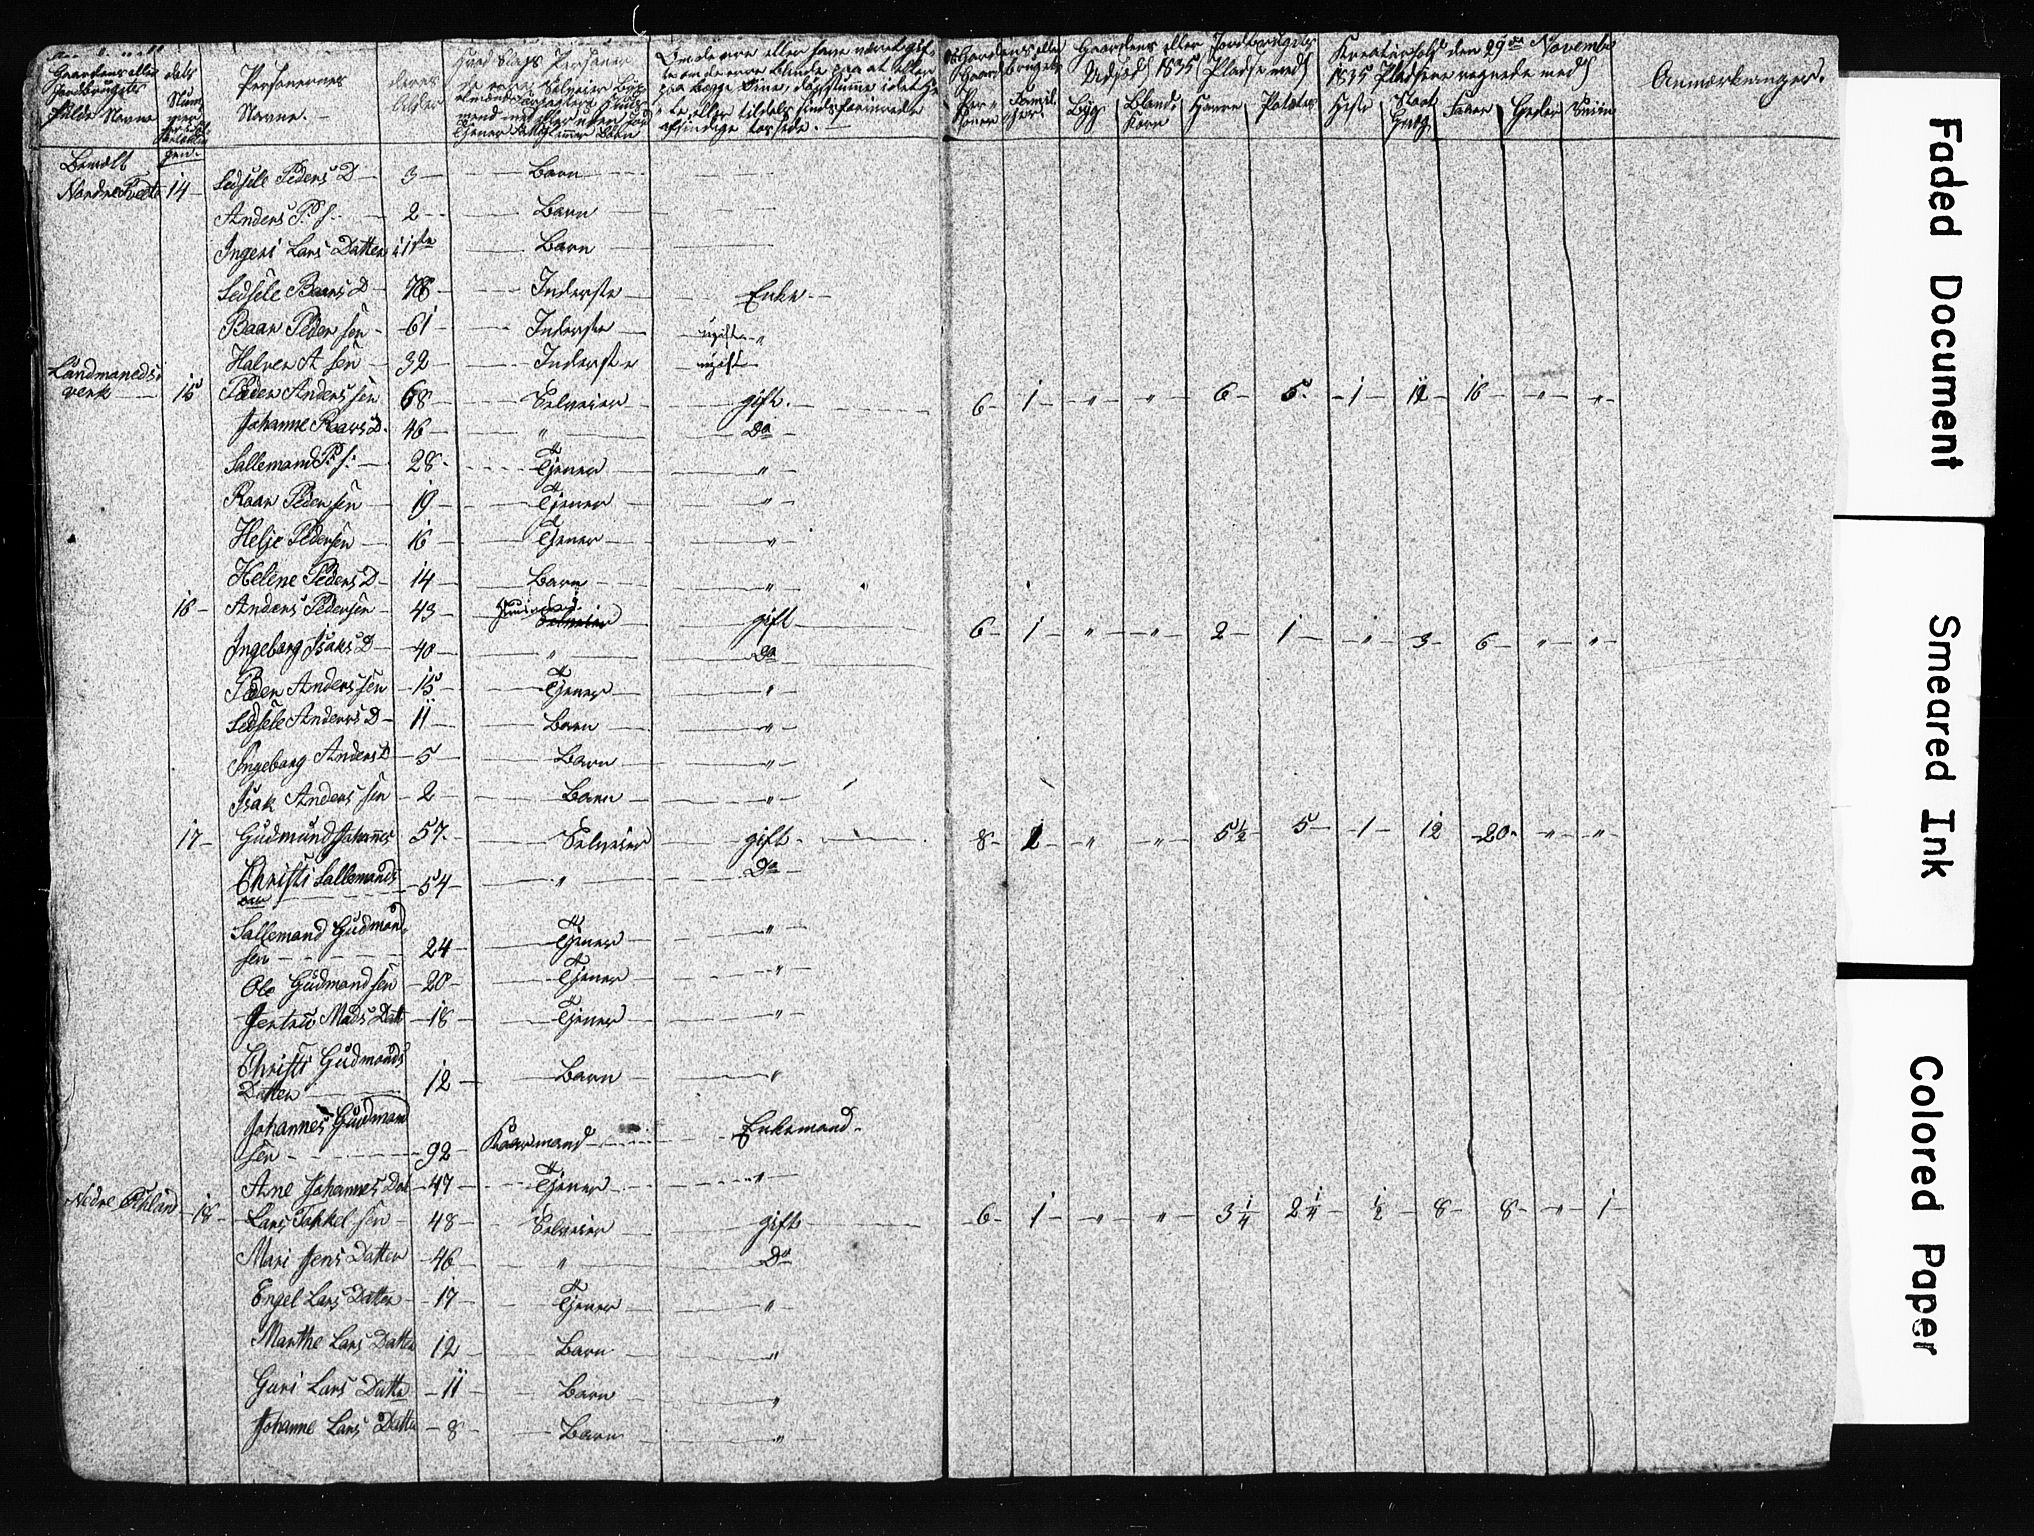 Personernes Navne.
deres Alder
Gaardens eller Jordbrugets Udsæd 1835 Pladse med
Kreaturhold den 29de Novembr 1835 Pladsene regnede med
Anmærkninger.
Byg Blandkorn Havre Potetes Heste Faar Geder Sviin
Nordre Tvedte 14 Sedsele Peders D 3 Barn
Anders P. s. 2 Barn
Ingeri Lars Datter 1ste Barn
Sedsele Baars D 78 Inderste Enke
Baar Peder sen 61 Inderste ugift
Halver A sen 32 Inderste ugift
Landmaneds
verk 15 Peder Anders sen 68 Selveier gift. 6 1 " " 6 5 1 12 16 " "
Johanne Roars D. 46 " Do
Sallemand P. s. 28 Tjener "
Roar Peder sen 19 Tjener "
Helje Pedersen 16 Tjener "
Helene Peders D 14 Barn "
16 Anders Pedersen 43 Huusmand gift 6 1 " " 2 1 " 3 6 " "
Ingeborg Isaks D 40 " Do
Peder Anders sen 15 Tjener "
Sedsele Anders D 11 Barn "
Ingeborg Anders D 5 Barn "
Isak Anders sen 2 Barn "
17 Gudmund Johannes 57 Selveier gift 8 2 " " 5 1/2 5 1 12 20 " "
Christi Sallemands
Datt 54 " Do
Sallemand Gudmand
sen 24 Tjener "
Ole Gudmand sen 20 Tjener "
Jertru Mads Datt 18 Tjener "
Christi Gudmands
Datter 12 Barn "
Johannes Gudmand
sen 92 Kaarmand Enkemand
Ane Johannes Dat 47 Tjener "
Nedre 18 Lars Torkel sen 48 Selveier gift 6 1 " " 3 1/4 2 1/4 1/2 8 8 " 1
Mari Jens Datter 46 " Do
Engel Lars Datter 17 Tjener "
Marthe Lars Datter 12 Barn "
Guri Lars Datte 11 Barn "
Johanne Lars Datte 8 Barn "
Faded Document
Smeared Ink
Colored Paper